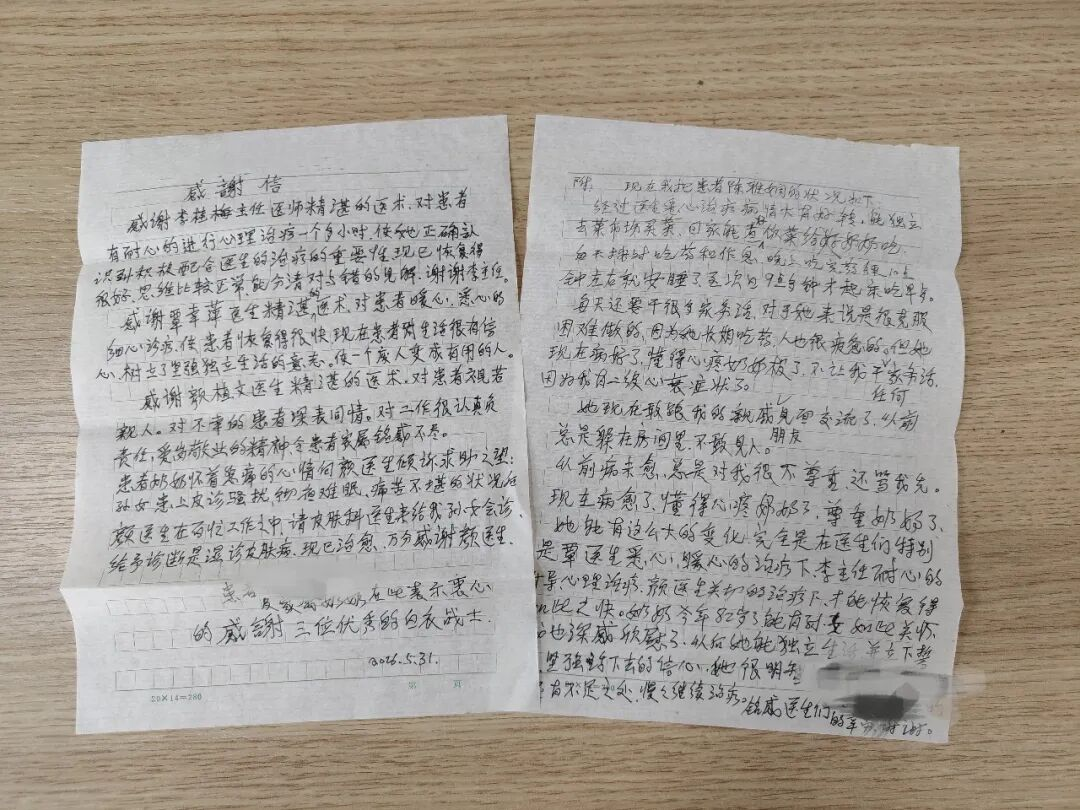 感謝信
感谢李桂梅主任医师精湛的医术,对患者
有耐心的进行心理治疗一个多小时,使她正确认
识到积极配合医生的治疗的重要性,现已恢复得
很好,思维比较正常,能分清对与错的见解,谢谢李主任。
感谢覃幸萍医生精湛的医术,对患者暖心,悉心的
细心诊疗,使患者恢复得很快,现在患者对生活很有信
心,树立了坚强独立生活的意志。使一个废人变成有用的人。
感谢颜植文医生精湛的医术。对患者视若
亲人。对不幸的患者深表同情。对工作很认真负
责任,爱岗敬业的精神,令患者家属铭感不尽。
患者奶奶怀着悲痛的心情向颜医生倾诉求助之望:
孙女患上皮诊骚扰,彻夜难眠,痛苦不堪的状况,
颜医生在百忙工作之中,请皮肤科医生来给我孙女会诊,
给予诊断是湿诊皮肤病,现已治愈,万分感谢颜医生。
患者 及家属奶奶在此表示衷心
的感謝三位优秀的白衣战士.
2026.5.31.
20×14=280 第 页
附: 现在我把患者陈雅 的状况如下:
经过医生悉心治疗病情大有好转,能独立
去菜市场买菜,回家能煮饭菜给奶奶吃
每天按时吃药和作息,晚上吃完药后10点
钟左右就安睡了至次日9点多钟才起床吃早点。
每天还要干很多家务活,对于她来说是很克服
困难做的,因为她长期吃药,人也很疲惫的。但她
现在病好了,懂得心疼奶奶极了,不让我干任何家务活,
因为我有二级心衰症状了。
她现在敢跟我的亲戚朋友见面交流了,从前
总是躲在房间里,不敢见人。
从前病未愈,总是对我很不尊重还骂我先。
现在病愈了,懂得心疼奶奶了,尊重奶奶了、
她能有这么大的变化,完全是在医生们特别
是覃医生悉心,暖心的治疗下,李主任耐心的
导心理治疗,颜医生关切的治疗下,才能恢复得
如此之快。奶奶今年82岁了能有
也深感欣慰了,从后她能独立生活
坚强 下去的信心,她很明
有不足之处,慢慢继续治疗。铭感医生们
的辛劳,谢谢。